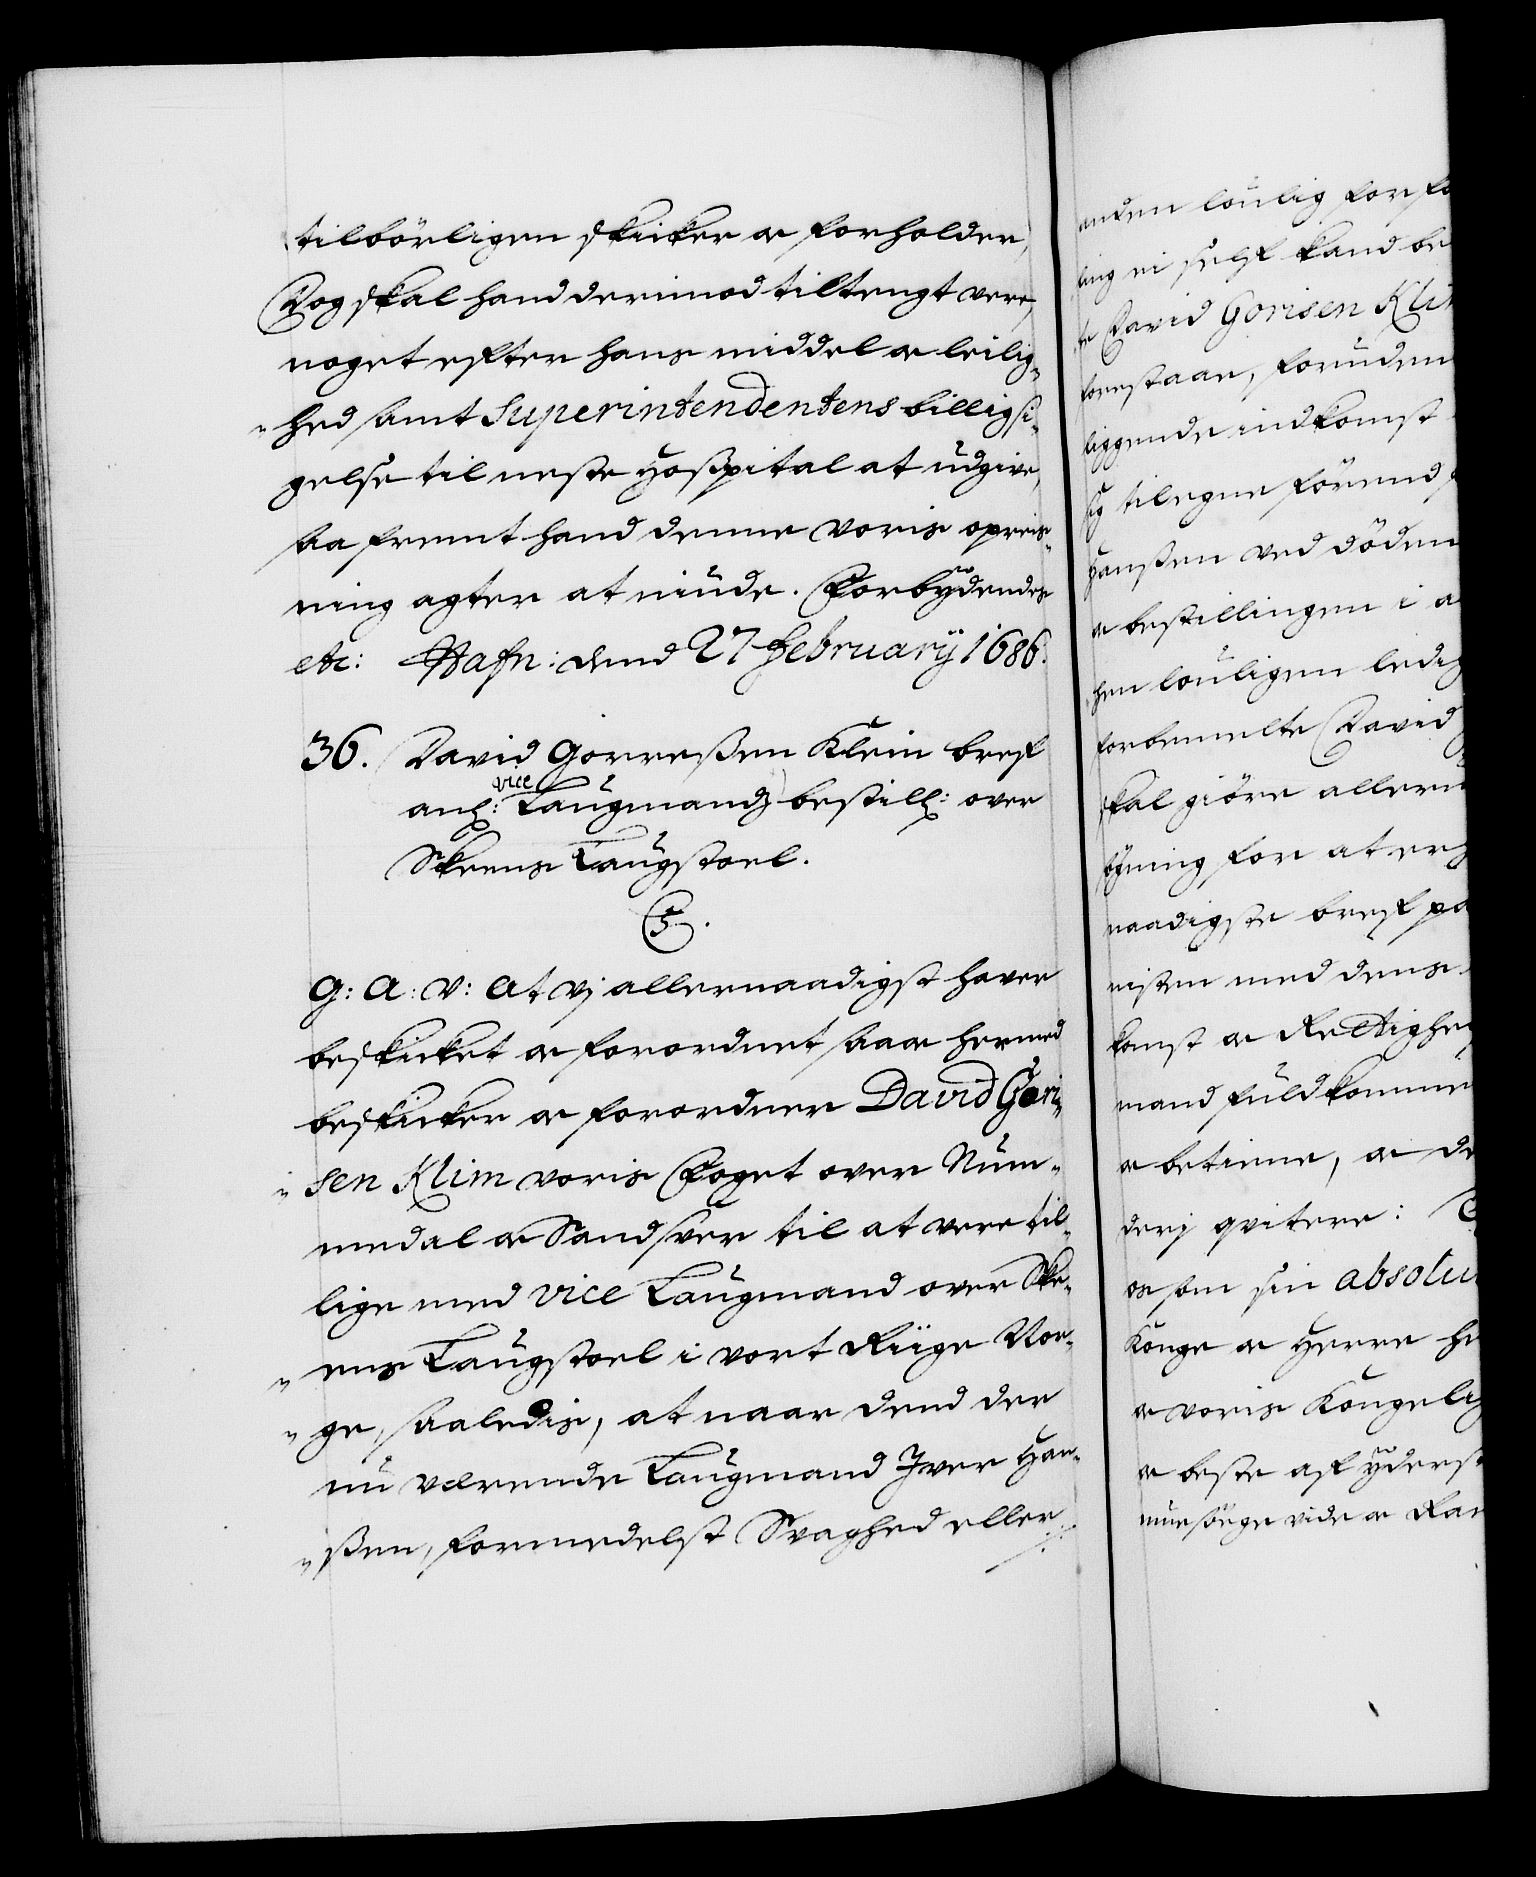 tilbörligen skicker oc forholder,
Dog skal hand derimod tiltengt vere,
noget efter hans middel oc leilig„
„hed samt Superintendentens billigsi„
gelse til neste Hospital at udgive,
saa fremt hand denne voris opreis„
ning agter at niude. Forbÿdendes
etc: Hafn: dend 27 februarÿ 1686.
36. David Gorressen Klein bref
vice
anl: Laugmandz bestill: over
Skeens Laugstoel.
C5.
G: A: V: At vj allernaadigst haver
beskicket oc forordnet saa oc hermed
beskicker oc forordner David Gori„
„sen Klim voris Foget over Num„
medal oc Sandsver til at vere til„
lige med vice Laugmand over Ske„
„ens Laugstoel i vort Riige Nor„
„ge, saaledis, at naar dend der
nu værende Laugmand Iver Han„
„ssen, formedelst Svaghed eller
anden loulig forfa
ling ei self kand be
te David Gorisen Kli
forestaar, foruden
liggende indkomst
sig tilegne förend
Hanssen ved döden
oc bestillingen i a
hen louligen ledig
forbemelte David
skal giöre allerun
ögning for at er
naadigste bref pa
visten med dens
komst oc Rettighe
mand fuldkomme
oc betiene, oc de
derj qvitere:
os som sin absolu
Konge oc Herre he
oc voris Kongelig
oc beste af ÿderst
mue söge vide oc Ram